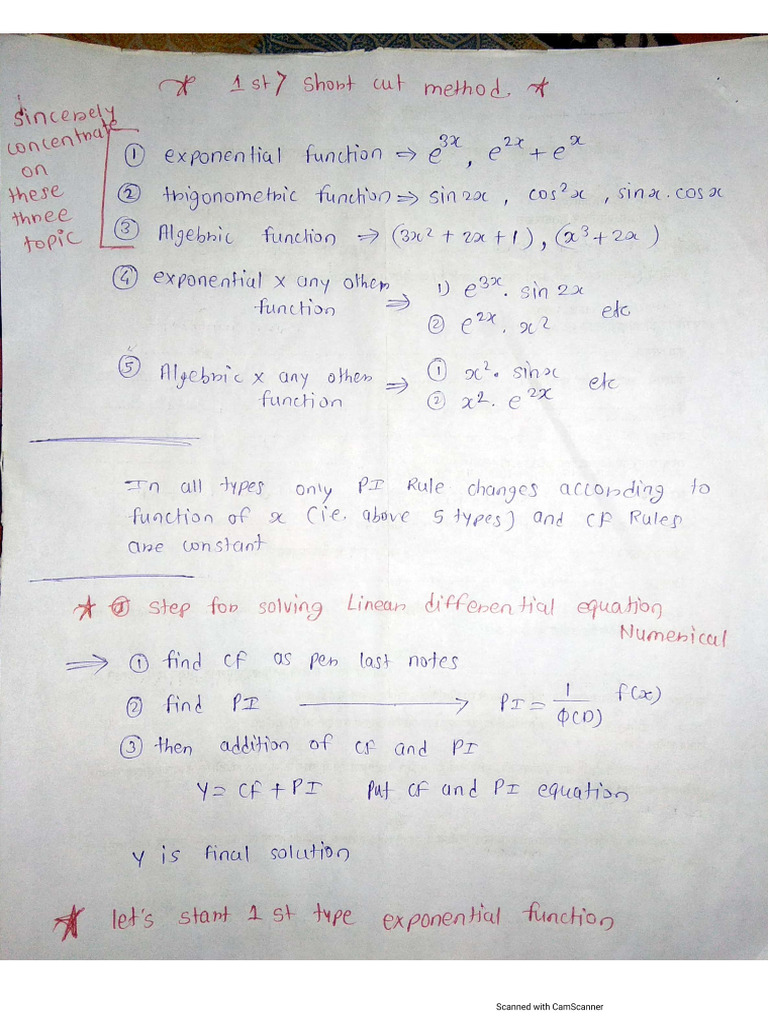 * 1 st> short cut method *
sincerely
concentrate
on
these
three
topic
① exponential function ⇒ e^3x, e^2x + e^x
② trigonometric function ⇒ sin2x, cos²x, sinx.cosx
③ Algebric function ⇒ (3x² + 2x + 1), (x³ + 2x)
④ exponential x any other function ⇒ 1) e^3x. sin 2x
② e^2x. x² etc
⑤ Algebric x any other function ⇒ ① x². sinx
② x². e^2x etc
In all types only PI Rule changes according to
function of x (ie. above 5 types) and CF Rules
are constant
* step for solving Linear differential equation
Numerical
⇒ ① find CF as per last notes
② find PI → PI = 1/Φ(D) f(x)
③ then addition of CF and PI
Y = CF + PI Put CF and PI equation
Y is final solution
* let's start 1 st type exponential function
Scanned with CamScanner